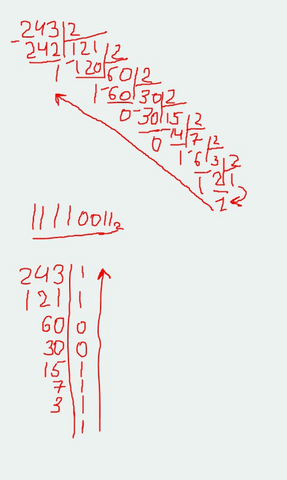 243 2
-242 121 2
1 -120 60 2
1 -60 30 2
0 -30 15 2
0 14 7 2
1 6 3 2
1 2 1
1
11110011₂
243 1
121 1
60 0
30 0
15 1
7 1
3 1
1